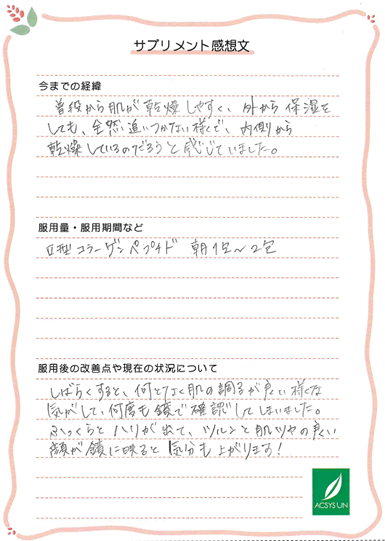 サプリメント感想文
今までの経緯
普段から肌が乾燥しやすく、外から保湿を
しても、全然追いつかない様で、内側から
乾燥しているのだろうと感じていました。
服用量・服用期間など
Ⅱ型コラーゲンペプチド 朝1包～2包
服用後の改善点や現在の状況について
しばらくすると、何となく肌の調子が良い様な
気がして、何度も鏡で確認してしまいました。
ふっくらとハリが出て、ツルンと肌ツヤの良い
顔が鏡に映ると気分も上がります!
ACSYS LIN